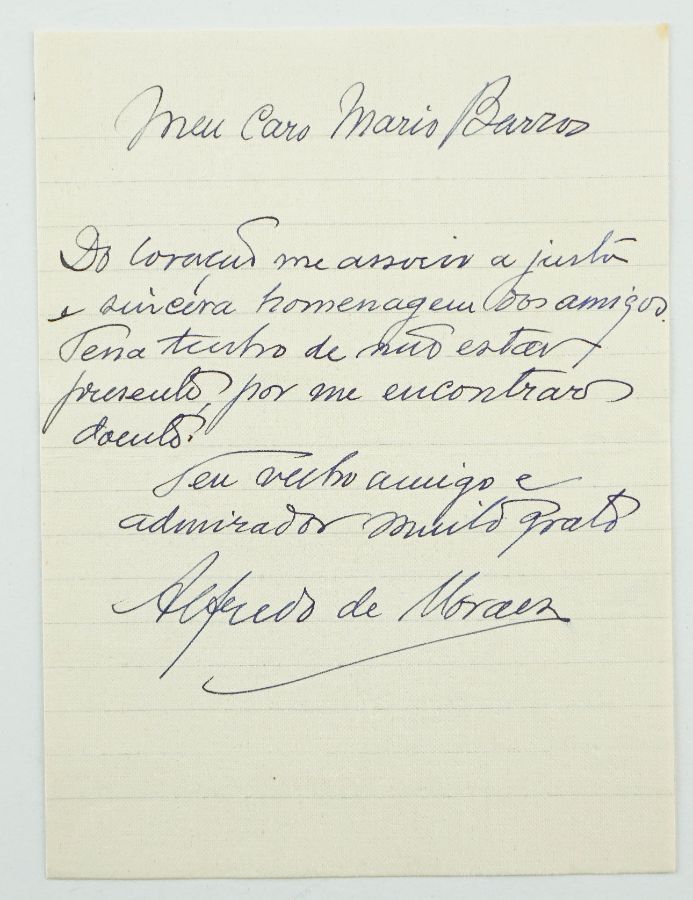 Meu Caro Mario Barros
Do coração me associo a justa
e sincéra homenagem dos amigos.
Pena tenho de não estar
presente, por me encontrar
doente.
Teu velho amigo e
admirador muito grato
Alfredo de Moraes